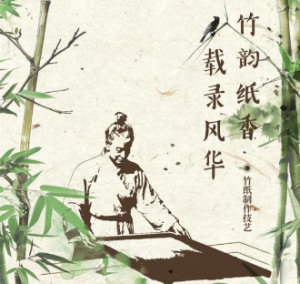 竹韵纸香
载录风华
竹纸制作技艺